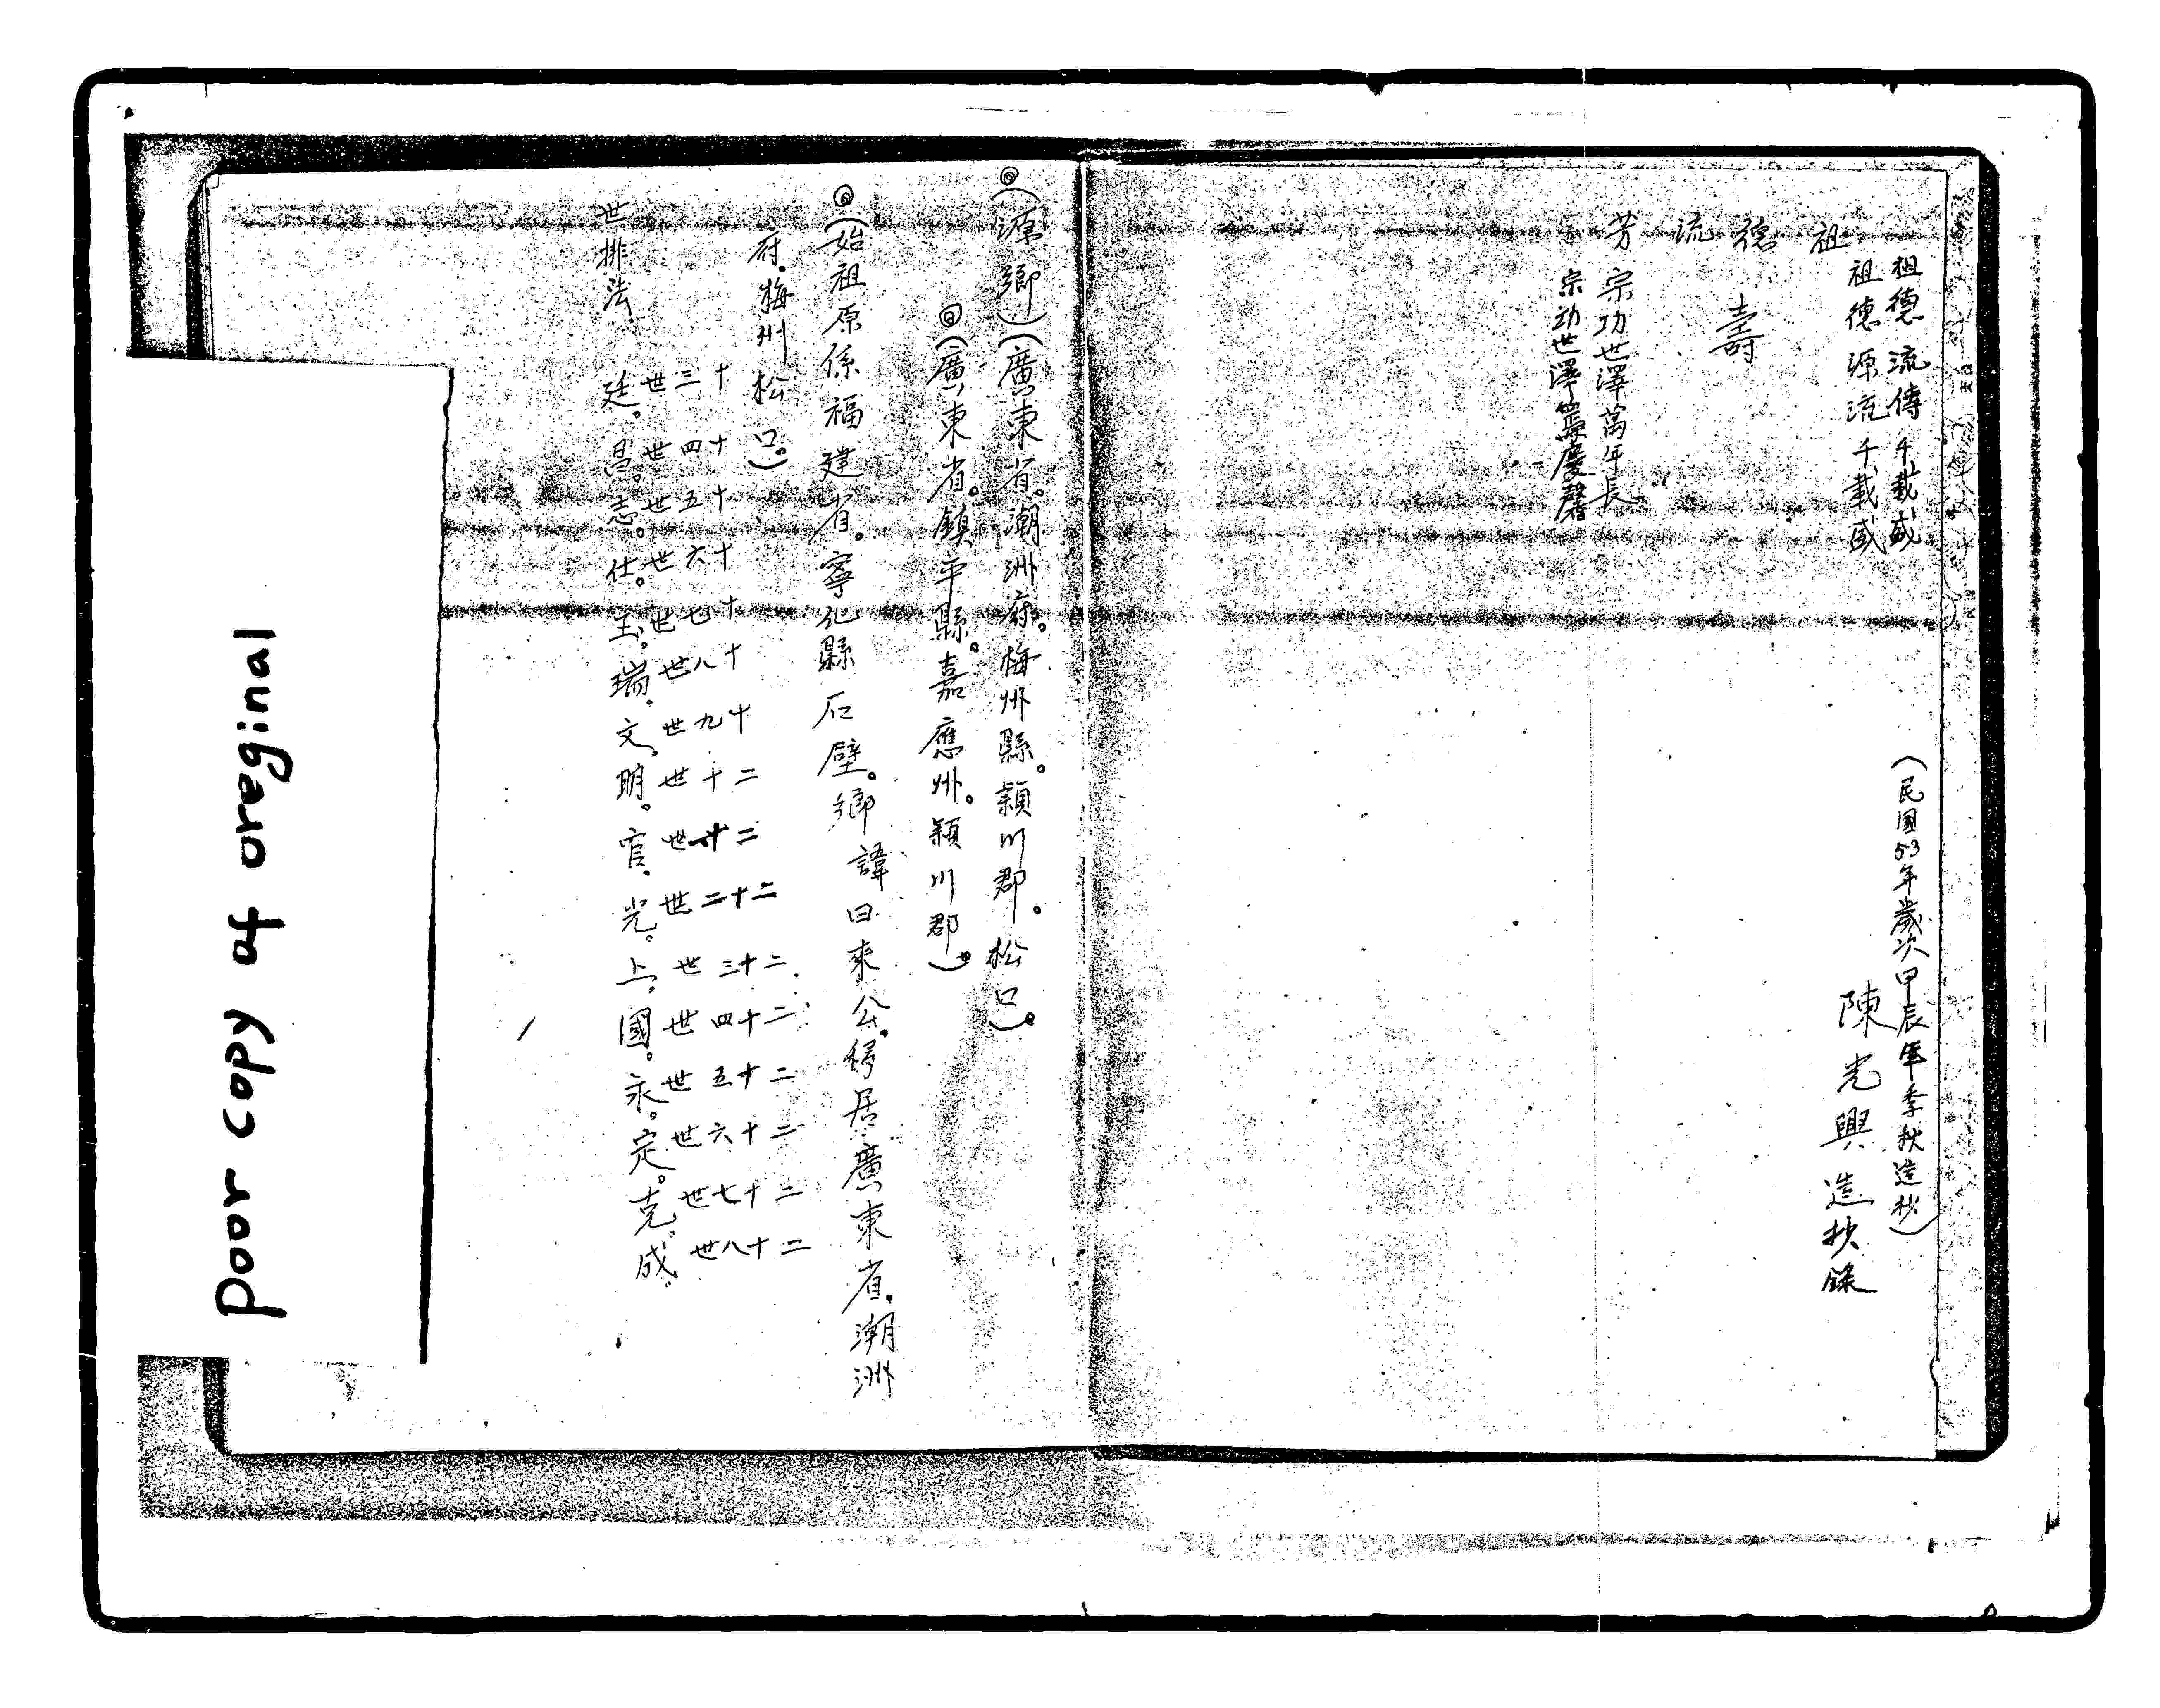 (民國53年歲次甲辰年季秋造抄)
陳光興造抄錄
祖德流傳千載盛
祖德源流千載盛
祖德流芳
壽
宗功世澤萬年長
宗功世澤馨
(源鄉)(廣東省。潮洲府。梅州縣。穎川郡。松口)。
(廣東省。鎮平縣。嘉應州。穎川郡)。
(始祖原係福建省。寧化縣石壁。鄉諱曰來公。移居廣東省。潮洲
府。梅州松口。)
十三世 十四世 十五世 十六世 十七世 十八世 十九世 二十世 二十一世 二十二世 二十三世 二十四世 二十五世 二十六世 二十七世 二十八世
世排法 廷。昌。志。仕。玉。瑞。文。明。官。光。上。國。永。定。克。成。
poor copy of oreginal